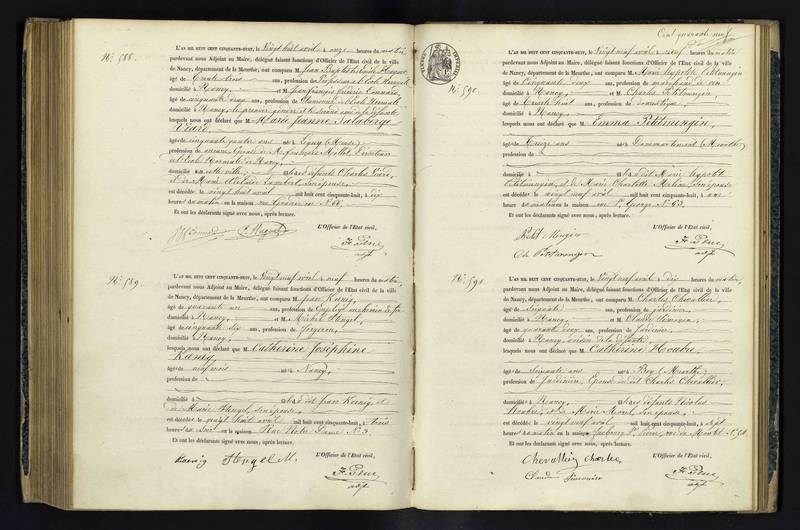 N° 588.
L'AN MIL HUIT CENT CINQUANTE-HUIT, le Vingt huit avril à onze heures du matin,
pardevant nous Adjoint au Maire, délégué faisant fonctions d'Officier de l'Etat civil de la ville
de Nancy, département de la Meurthe, ont comparu M. Jean Baptiste
âgé de trente trois ans, profession de Professeur à l'école Normale
domicilié à Nancy, et M. Jean François Frédéric
âgé de cinquante ans, profession de l'école Normale
domicilié à Nancy, le premier gendre et le second ami de la défunte
lesquels nous ont déclaré que M. Marie Jeanne Salaberge
Viard,
âgée de cinquante quatre ans né à Ligny (Meuse)
profession de épouse de M. François Directeur
de l'école Normale de Nancy,
domicilié à cette ville, fille de défunts Charles Viard,
et de Marie son épouse,
est décédée le vingt huit avril mil huit cent cinquante-huit, à dix
heures du matin en la maison rue N° 66,
Et ont les déclarants signé avec nous, après lecture.
L'Officier de l'Etat civil,
adjt
N° 589.
L'AN MIL HUIT CENT CINQUANTE-HUIT, le Vingt neuf avril à neuf heures du matin,
pardevant nous Adjoint au Maire, délégué faisant fonctions d'Officier de l'Etat civil de la ville
de Nancy, département de la Meurthe, ont comparu M. Jean Kœnig,
âgé de quarante un ans, profession de Employé au chemin de fer
domicilié à Nancy, et M. Michel Hengel,
âgé de cinquante six ans, profession de
domicilié à Nancy,
lesquels nous ont déclaré que M. Catherine Joséphine
Kœnig,
âgée de neuf mois né à Nancy,
profession de
domicilié à fille dudit Jean Koenig et
de Marie Hengel, son épouse,
est décédée le vingt huit avril mil huit cent cinquante-huit, à trois
heures du soir en la maison Rue Notre Dame N° 3.
Et ont les déclarants signé avec nous, après lecture.
L'Officier de l'Etat civil,
Koenig Hengel M.
adjt
Cent quarante neuf
N° 590.
L'AN MIL HUIT CENT CINQUANTE-HUIT, le Vingt neuf avril à neuf heures du matin
pardevant nous Adjoint au Maire, délégué faisant fonctions d'Officier de l'Etat civil de la ville
de Nancy, département de la Meurthe, ont comparu M. Marie hypolite Petitmengin
âgé de Cinquante deux ans, profession de marchand de vin
domicilié à Nancy, et M. Charles Petitmengin,
âgé de trente huit ans, profession de domestique,
domicilié à Nancy,
lesquels nous ont déclaré que M. Emma Petitmengin,
âgée de Onze ans né à (Meurthe)
profession de
domicilié à fille dudit Marie hypolite
Petitmengin, et de Marie Charlotte son épouse
est décédée le vingt neuf avril mil huit cent cinquante-huit, à une
heure du matin en la maison rue St. George N° 63.
Et ont les déclarants signé avec nous, après lecture.
L'Officier de l'Etat civil,
Petit Mengin
Ch Petitmengin
adjt
N° 591.
L'AN MIL HUIT CENT CINQUANTE-HUIT, le Vingt neuf avril à dix heures du matin,
pardevant nous Adjoint au Maire, délégué faisant fonctions d'Officier de l'Etat civil de la ville
de Nancy, département de la Meurthe, ont comparu M. Charles Chevallier,
âgé de soixante ans, profession de jardinier,
domicilié à Nancy, et M. Claude
âgé de quarante deux ans, profession de Jardinier,
domicilié à Nancy, voisin de la défunte,
lesquels nous ont déclaré que M. Catherine Houdre,
âgée de soixante ans né à Bey (Meurthe)
profession de Jardinière, Epouse dudit Charles Chevallier,
domicilié à Nancy, fille de défunts Nicolas
Houdre, et de Marie son épouse,
est décédée le vingt neuf avril mil huit cent cinquante-huit, à sept
heures du matin en la maison faubourg St. Pierre, rue du Montet N° 50.
Et ont les déclarants signé avec nous, après lecture.
L'Officier de l'Etat civil,
Chevallier Charles
Claude
adjt